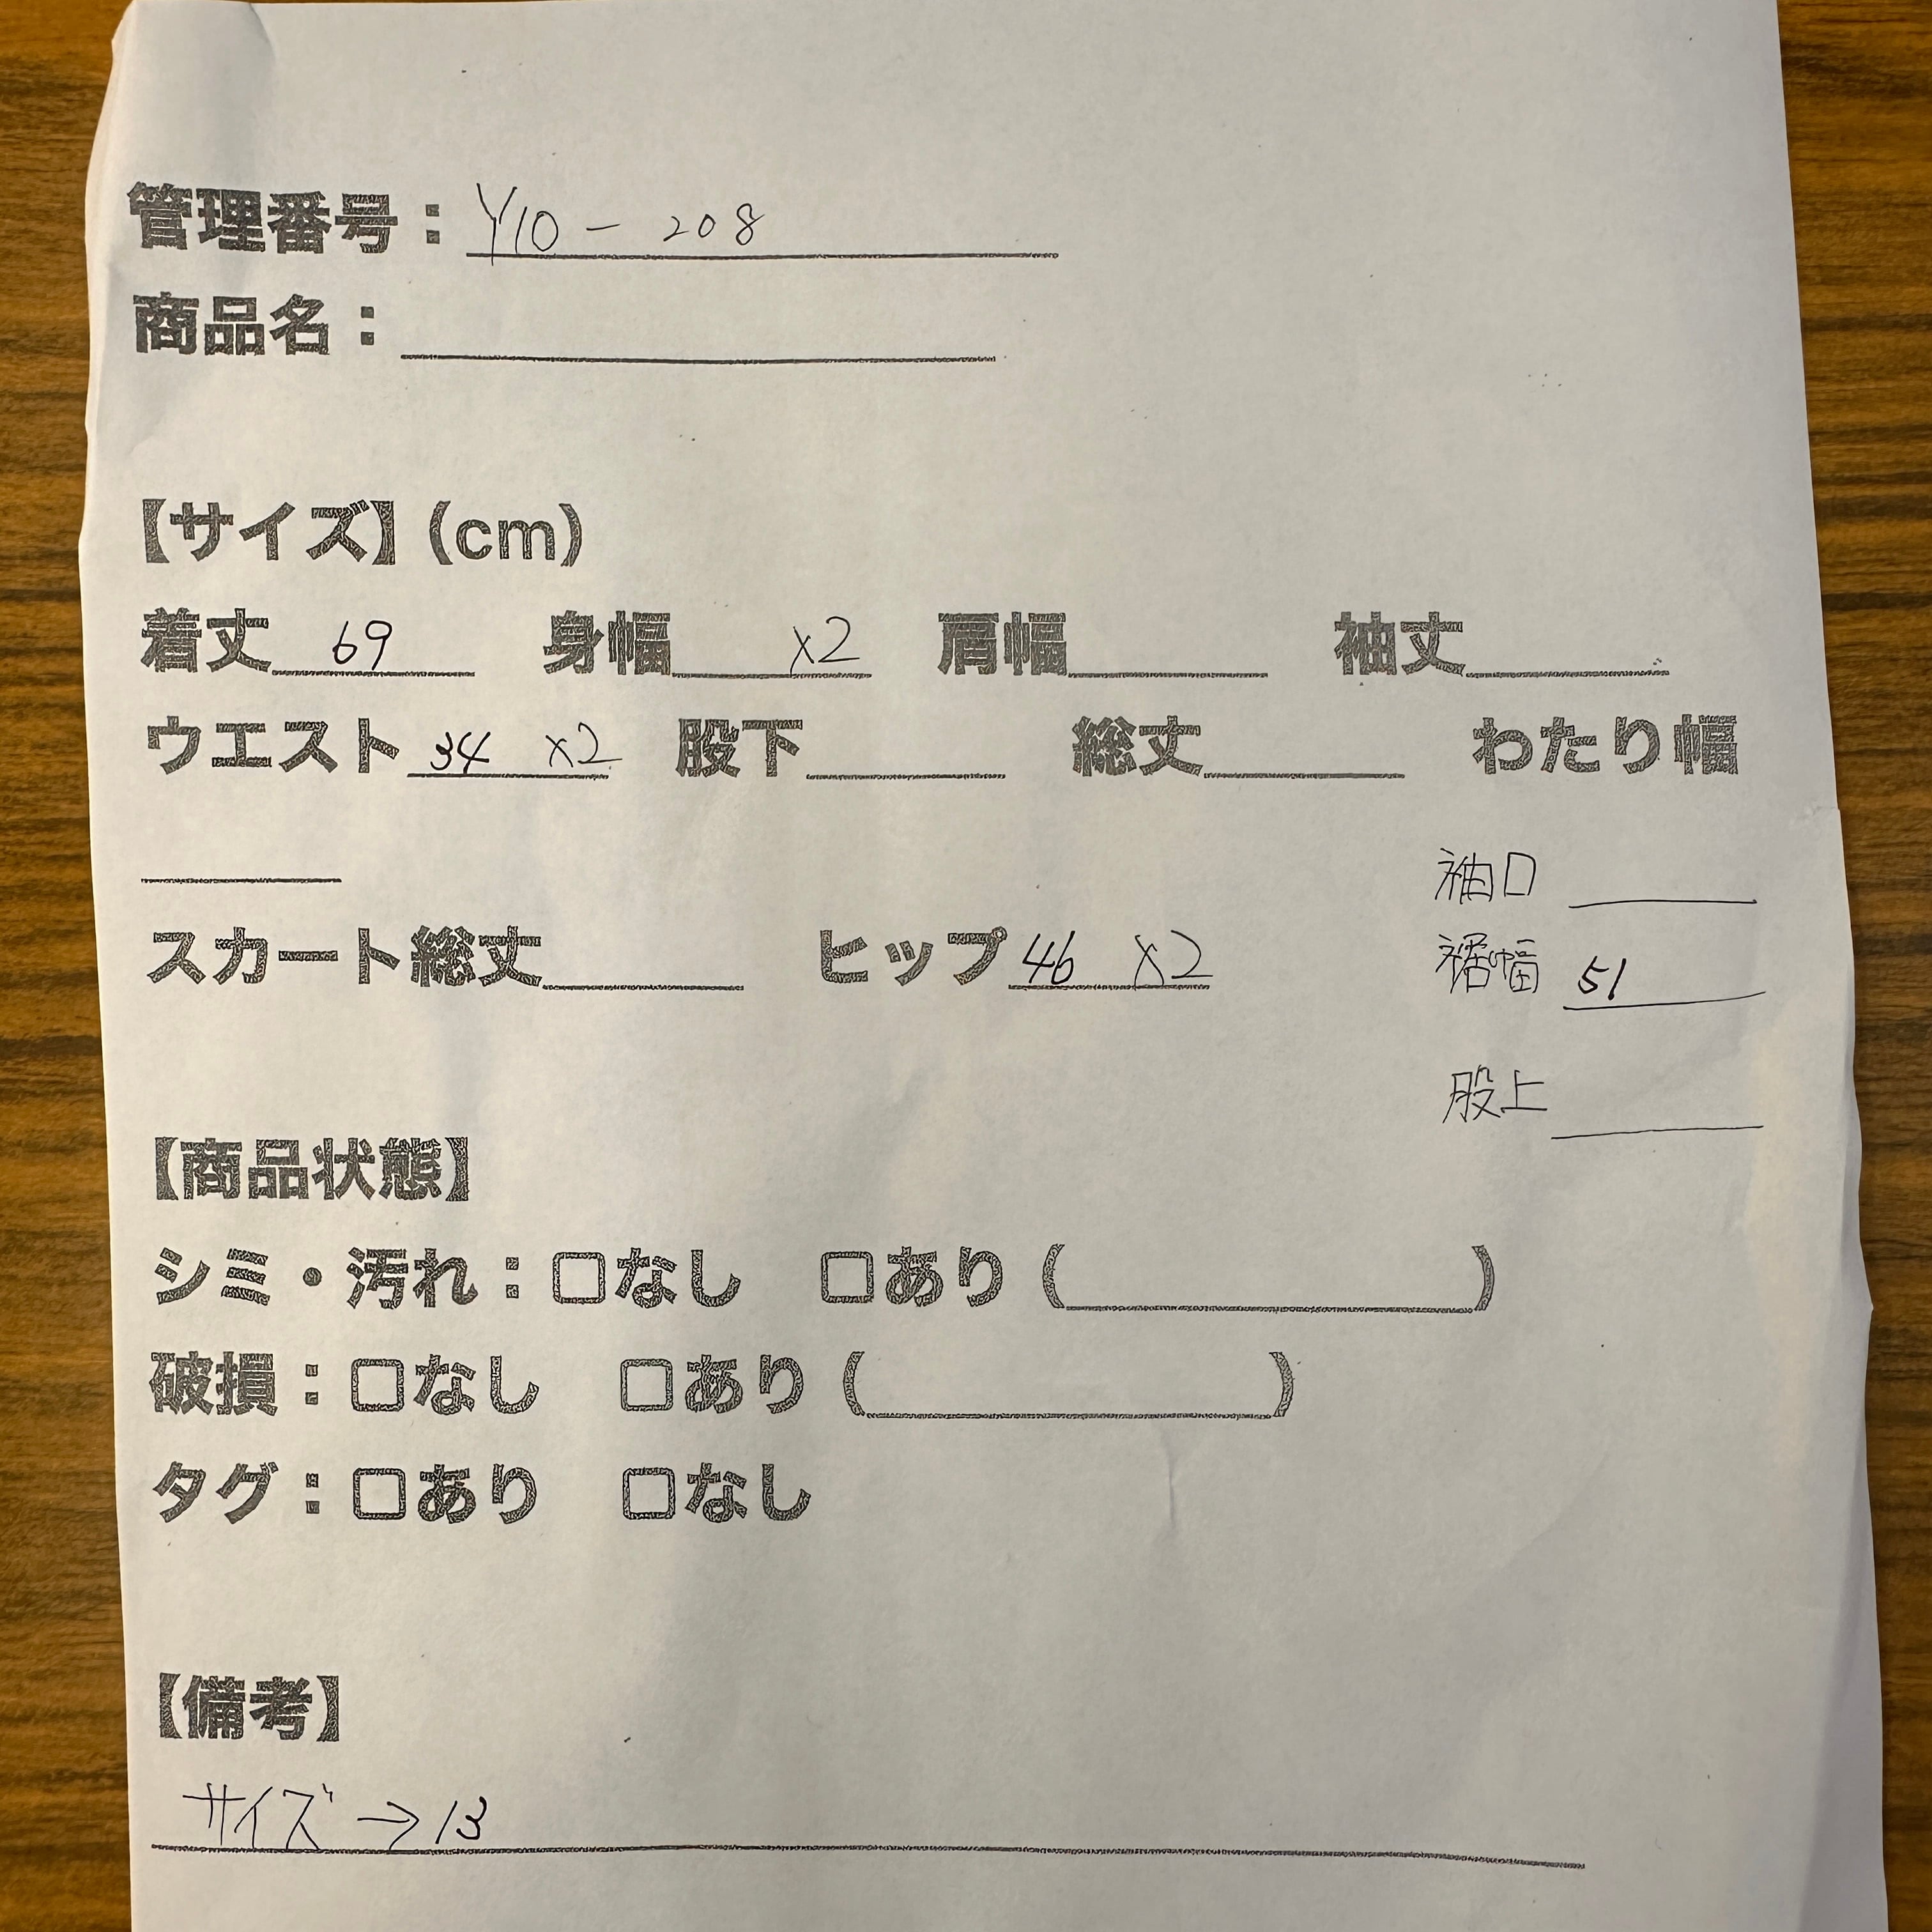 管理番号：Y10-208
商品名：
【サイズ】(cm)
着丈 69 身幅 ×2 肩幅 袖丈
ウエスト 34 ×2 股下 総丈 わたり幅
袖口
スカート総丈 ヒップ 46 ×2 裾幅 51
股上
【商品状態】
シミ・汚れ：□なし □あり( )
破損：□なし □あり( )
タグ：□あり □なし
【備考】
サイズ→13